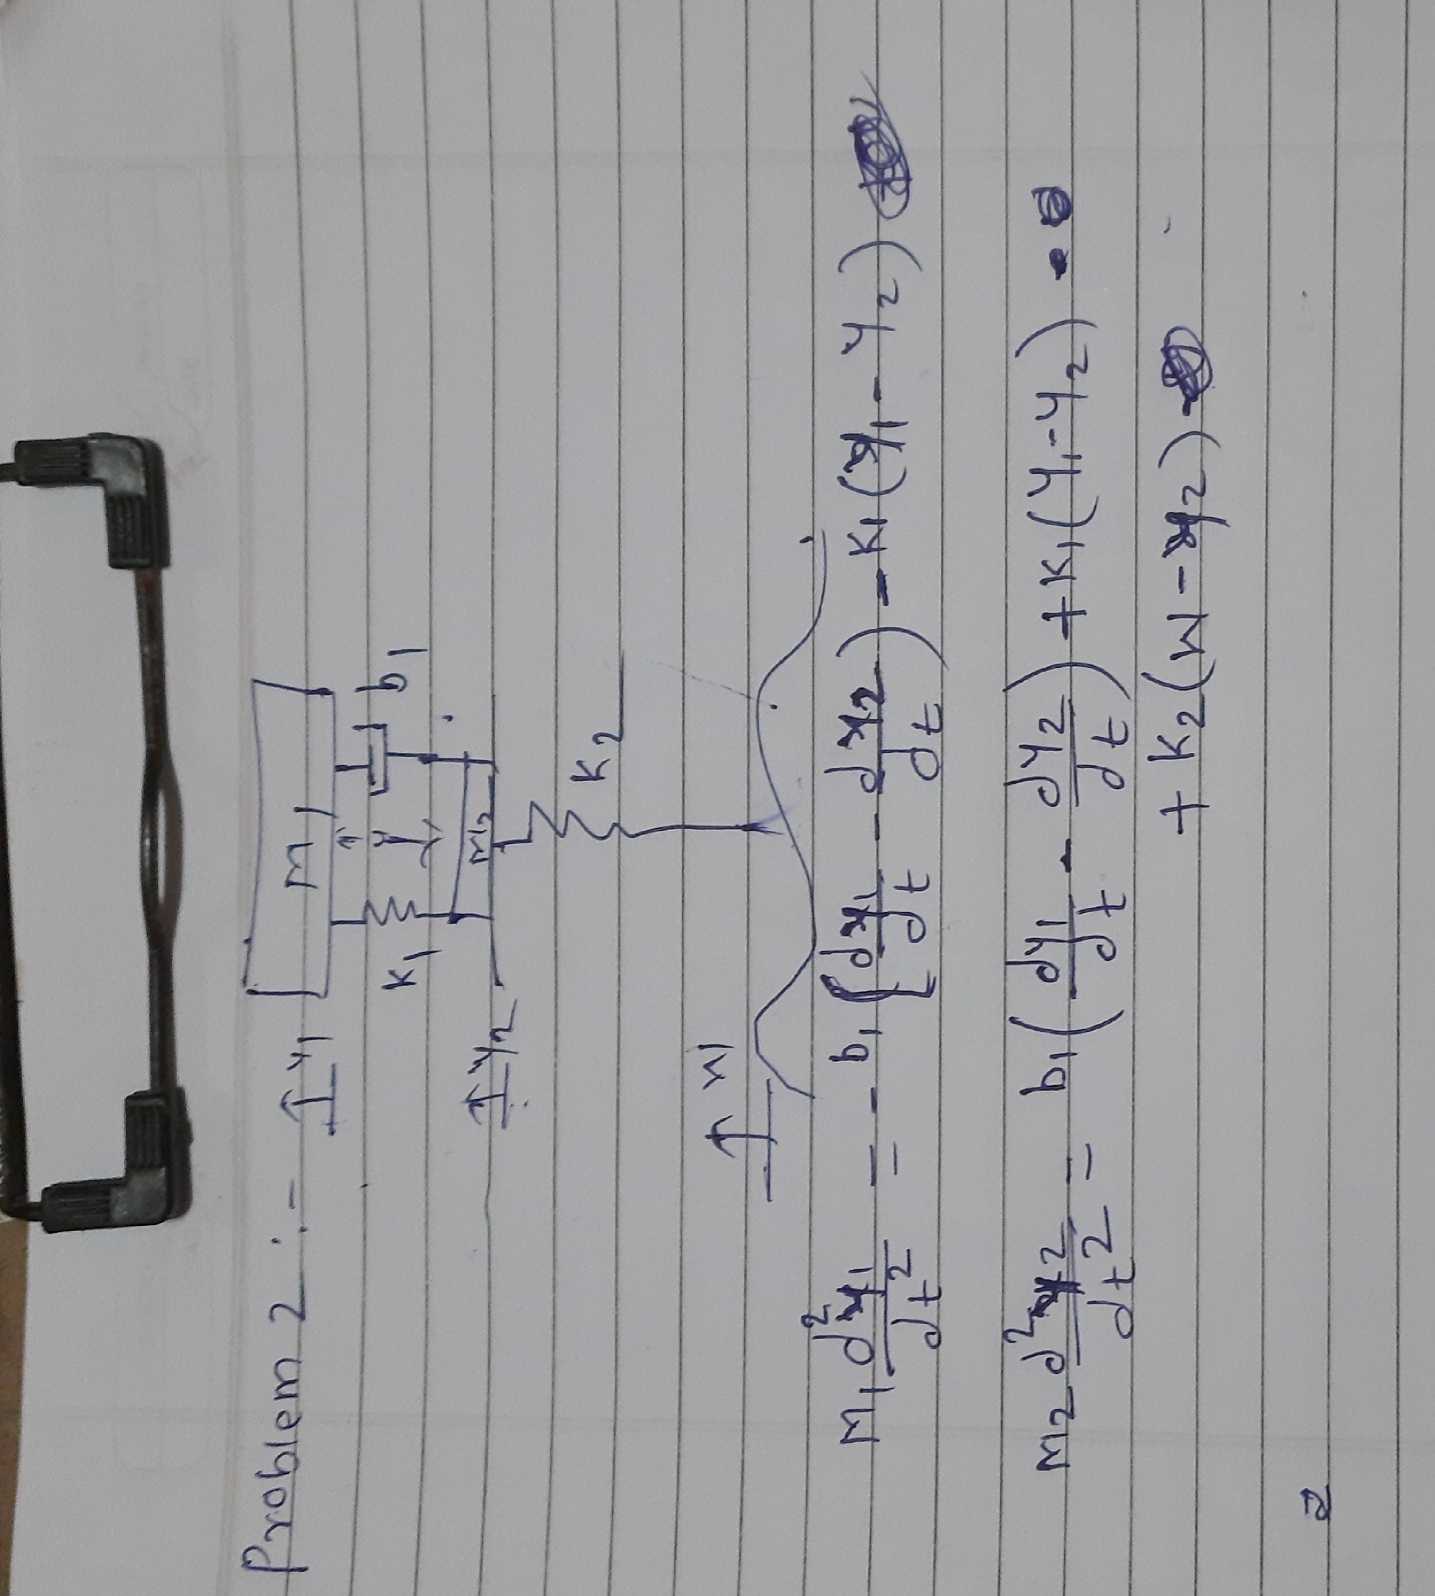 Problem 2 :-
↑ y1
M1
K1
b1
↑ y2
m2
K2
↑ W
M1 d²y1/dt² = - b1 (dy1/dt - dy2/dt) - K1 (y1 - y2)
m2 d²y2/dt² = b1 (dy1/dt - dy2/dt) + K1 (y1 - y2)
+ K2 (W - y2)